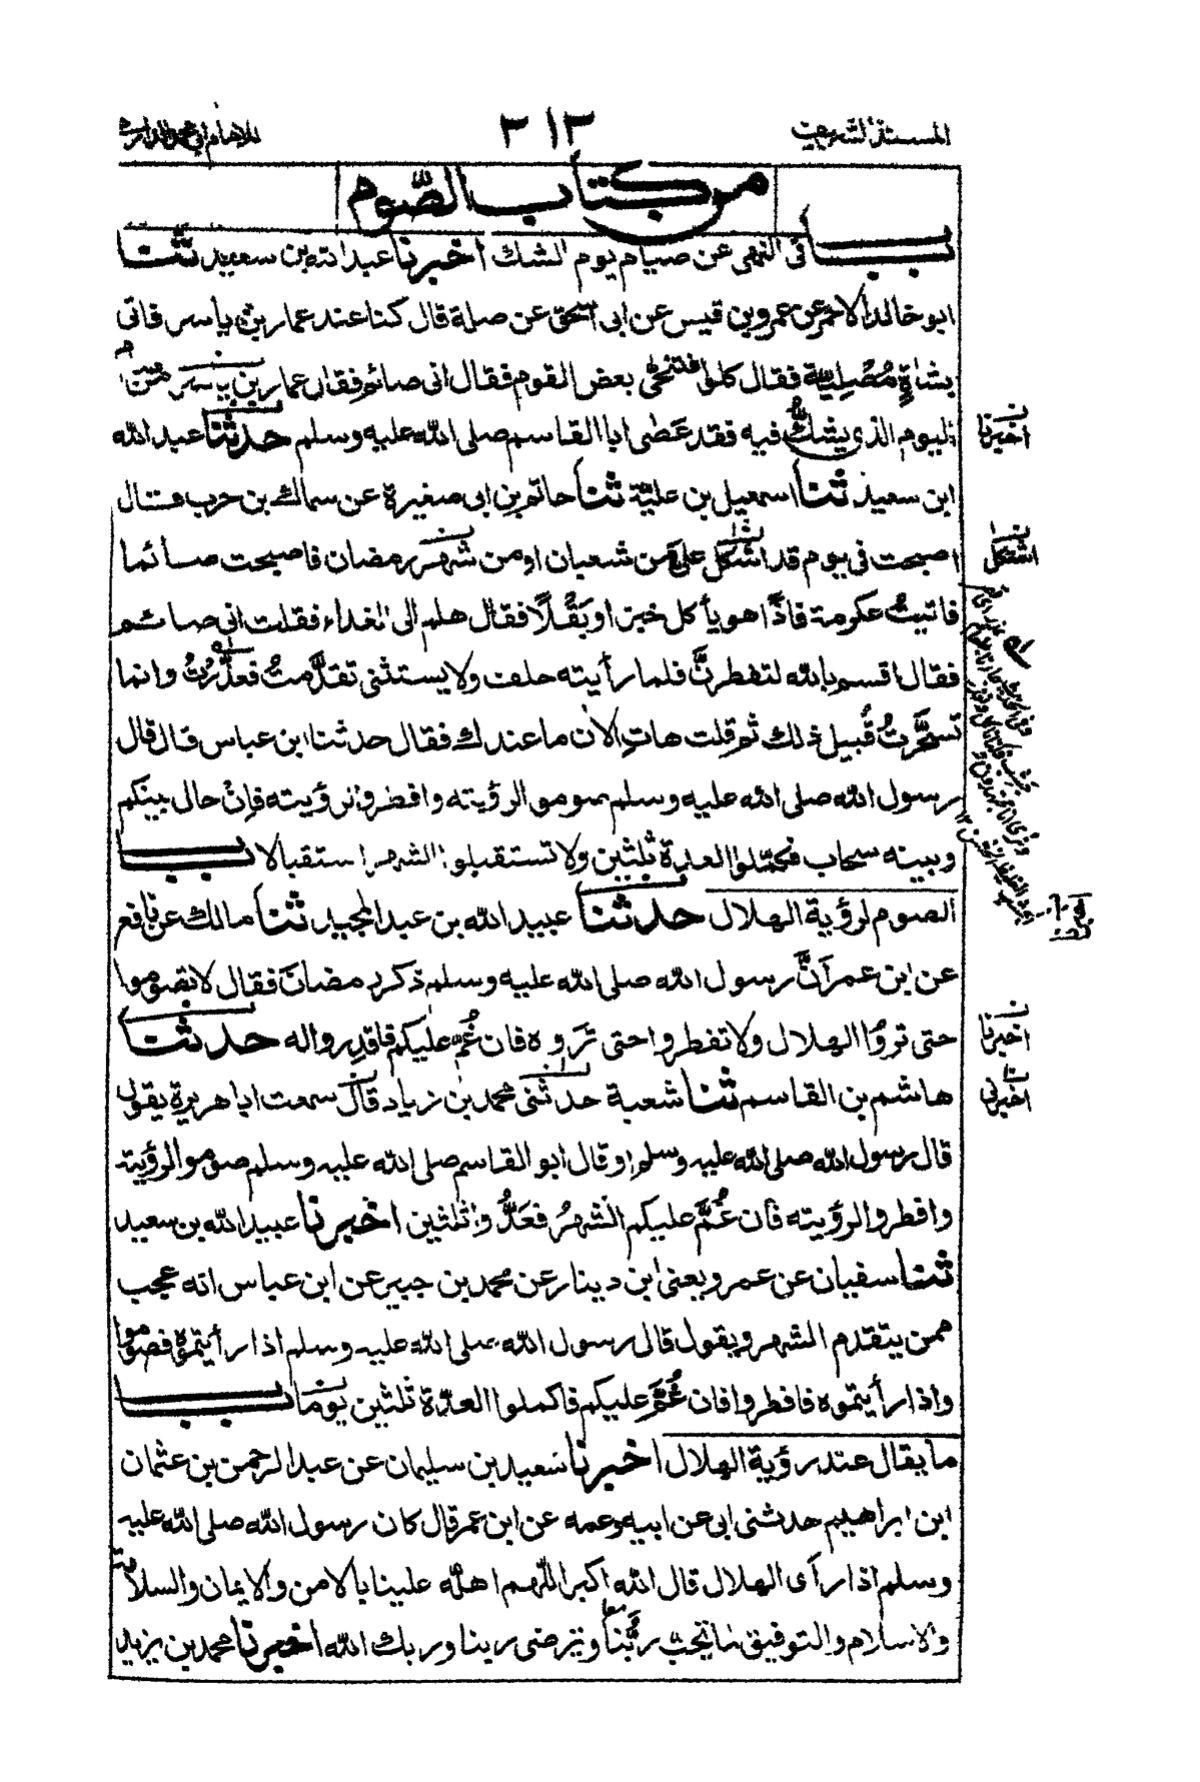 المسند الشريف
٣١٣
للامام ابى محمد الدارمى
من كتاب الصّوم
باب فى النهى عن صيام يوم الشك اخبرنا عبد الله بن سعيد ثنا
ابو خالد الاحمر عن عمرو بن قيس عن ابى اسحق عن صلة قال كنا عند عمار بن ياسر فاتى
بشاةٍ مُصْلِيَّة فقال كلوا فتنحّى بعض القوم فقال انى صائم فقال عمار بن ياسر من صام
اليوم الذى يشكّ فيه فقد عَصَى ابا القاسم صلى الله عليه وسلم حدثنا عبد الله
ابن سعيد ثنا اسمعيل بن عليّة ثنا حاتم بن ابى صغيرة عن سماك بن حرب قال
اصبحت فى يوم قد اشكل علىّ من شعبان او من شهر رمضان فاصبحت صائما
فاتيتُ عكرمة فاذا هو يأكل خبزا وبَقْلًا فقال هلم الى الغداء فقلت انى صائم
فقال اقسم بالله لتفطرنَّ فلما رأيته حلف ولا يستثنى تقدَّمتُ فعذَّرْتُ وانما
تسحَّرتُ قُبيل ذلك ثم قلت هاتِ الآن ما عندك فقال حدثنا ابن عباس قال قال
رسول الله صلى الله عليه وسلم صوموا لرؤيته وافطروا لرؤيته فاِنْ حال بينكم
وبينه سحاب فكمّلوا العدة ثلثين ولا تستقبلوا الشهر استقبالا باب
الصوم لرؤية الهلال حدثنا عبيد الله بن عبد المجيد ثنا مالك عن نافع
عن ابن عمر اَنَّ رسول الله صلى الله عليه وسلم ذكر رمضانَ فقال لا تصوموا
حتى تروُا الهلال ولا تفطروا حتى تَرَوه فان غُمَّ عليكم فاقدروا له حدثنا
هاشم بن القاسم ثنا شعبة حدثنى محمد بن زياد قال سمعت ابا هريرة يقول
قال رسول الله صلى الله عليه وسلم او قال ابو القاسم صلى الله عليه وسلم صوموا لرؤيته
وافطروا لرؤيته فان غُمَّ عليكم الشهرُ فعدُّوا ثلثين اخبرنا عبيد الله بن سعيد
ثنا سفيان عن عمرو يعنى ابن دينار عن محمد بن جبير عن ابن عباس انه عجب
ممن يتقدم الشهر ويقول قال رسول الله صلى الله عليه وسلم اذا رأيتموه فصوموا
واذا رأيتموه فافطروا فان غُمَّ عليكم فاكملوا العدّة ثلثين يوما باب
ما يقال عند رؤية الهلال اخبرنا سعيد بن سليمان عن عبد الرحمن بن عثمان
ابن ابراهيم حدثنى ابى عن ابيه وعمه عن ابن عمر قال كان رسول الله صلى الله عليه
وسلم اذا رأى الهلال قال الله اكبر اللّهم اهلّه علينا بالامن والايمان والسلامة
والاسلام والتوفيق لما تحب ربَّنا وترضى ربنا وربك الله اخبرنا محمد بن يزيد
اخبرنا
اشتكل
اخبرنا
اخبرنى